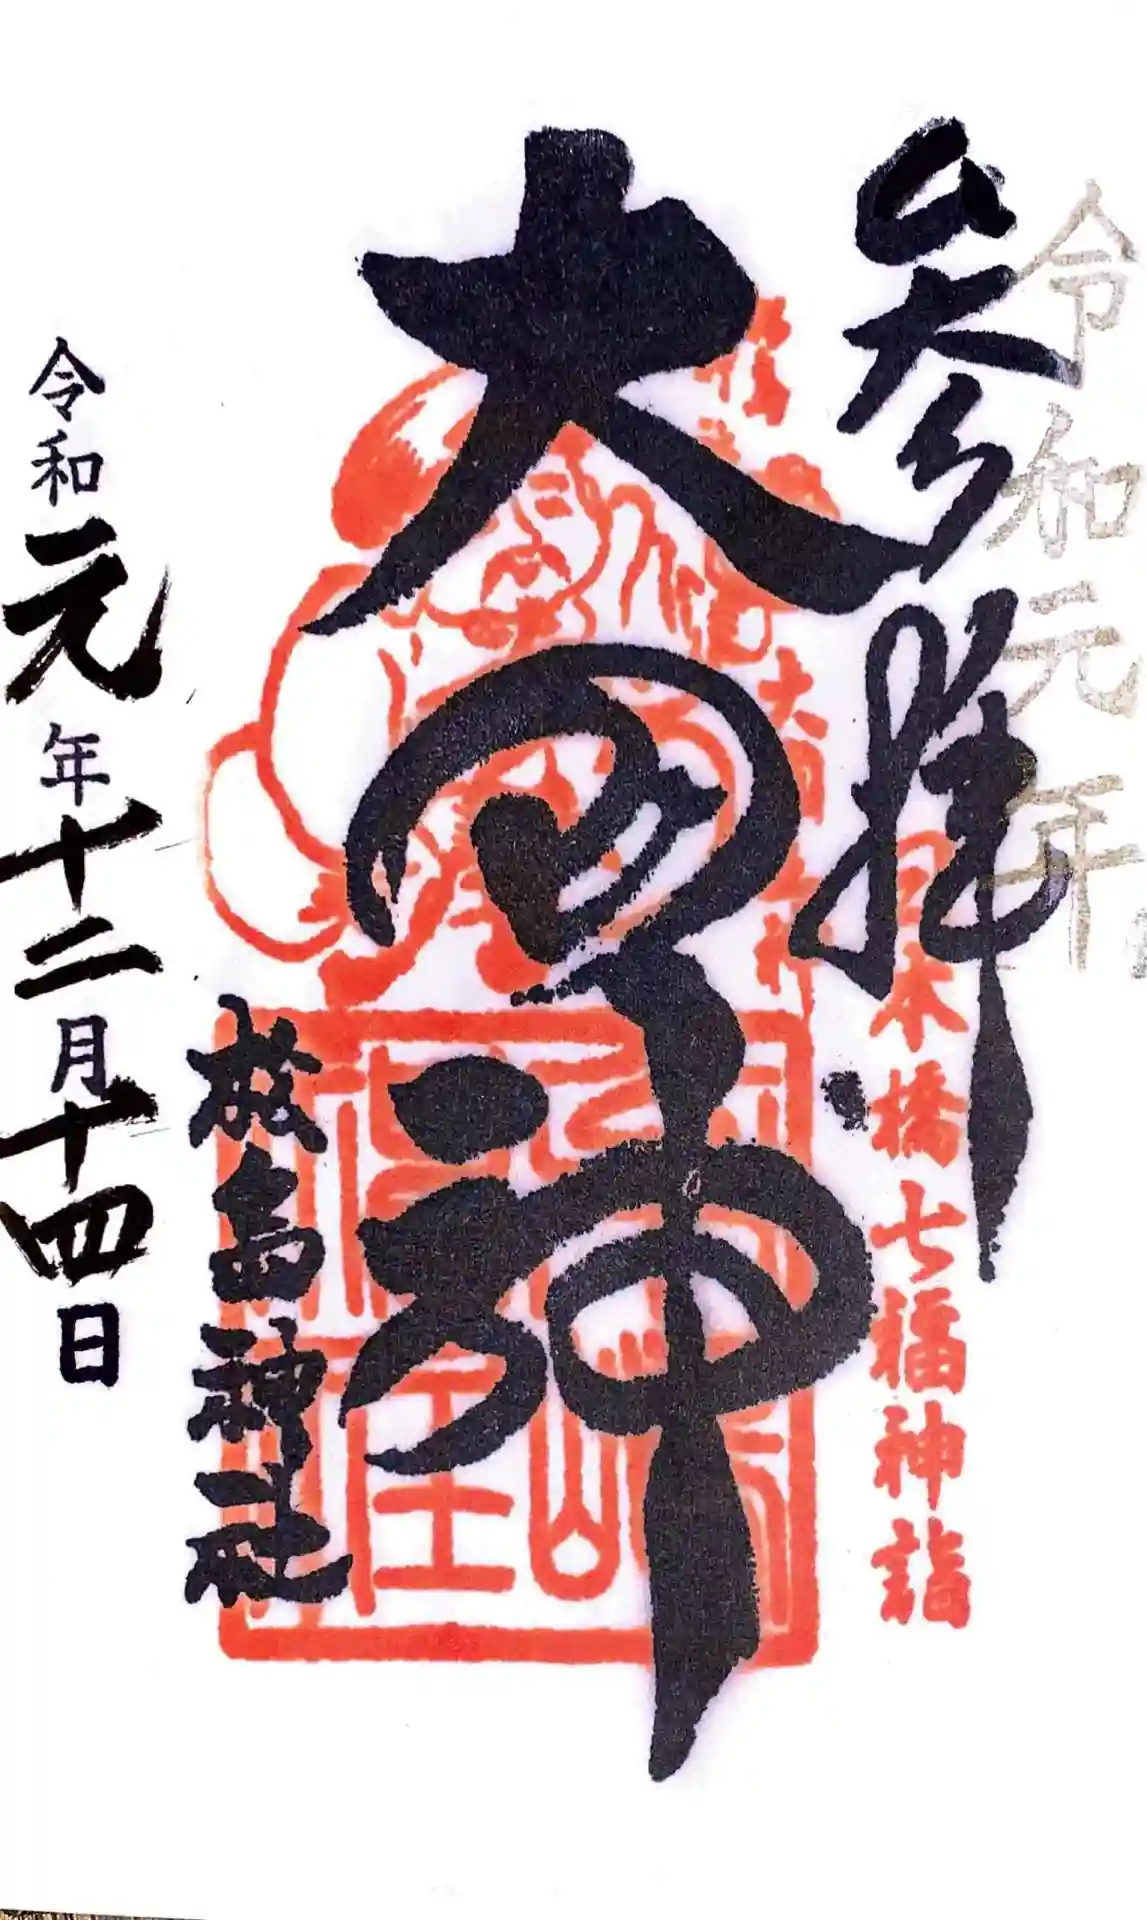 令和元年
参拝
日本橋七福神詣
大黒神
松島神社
令和元年十二月十四日